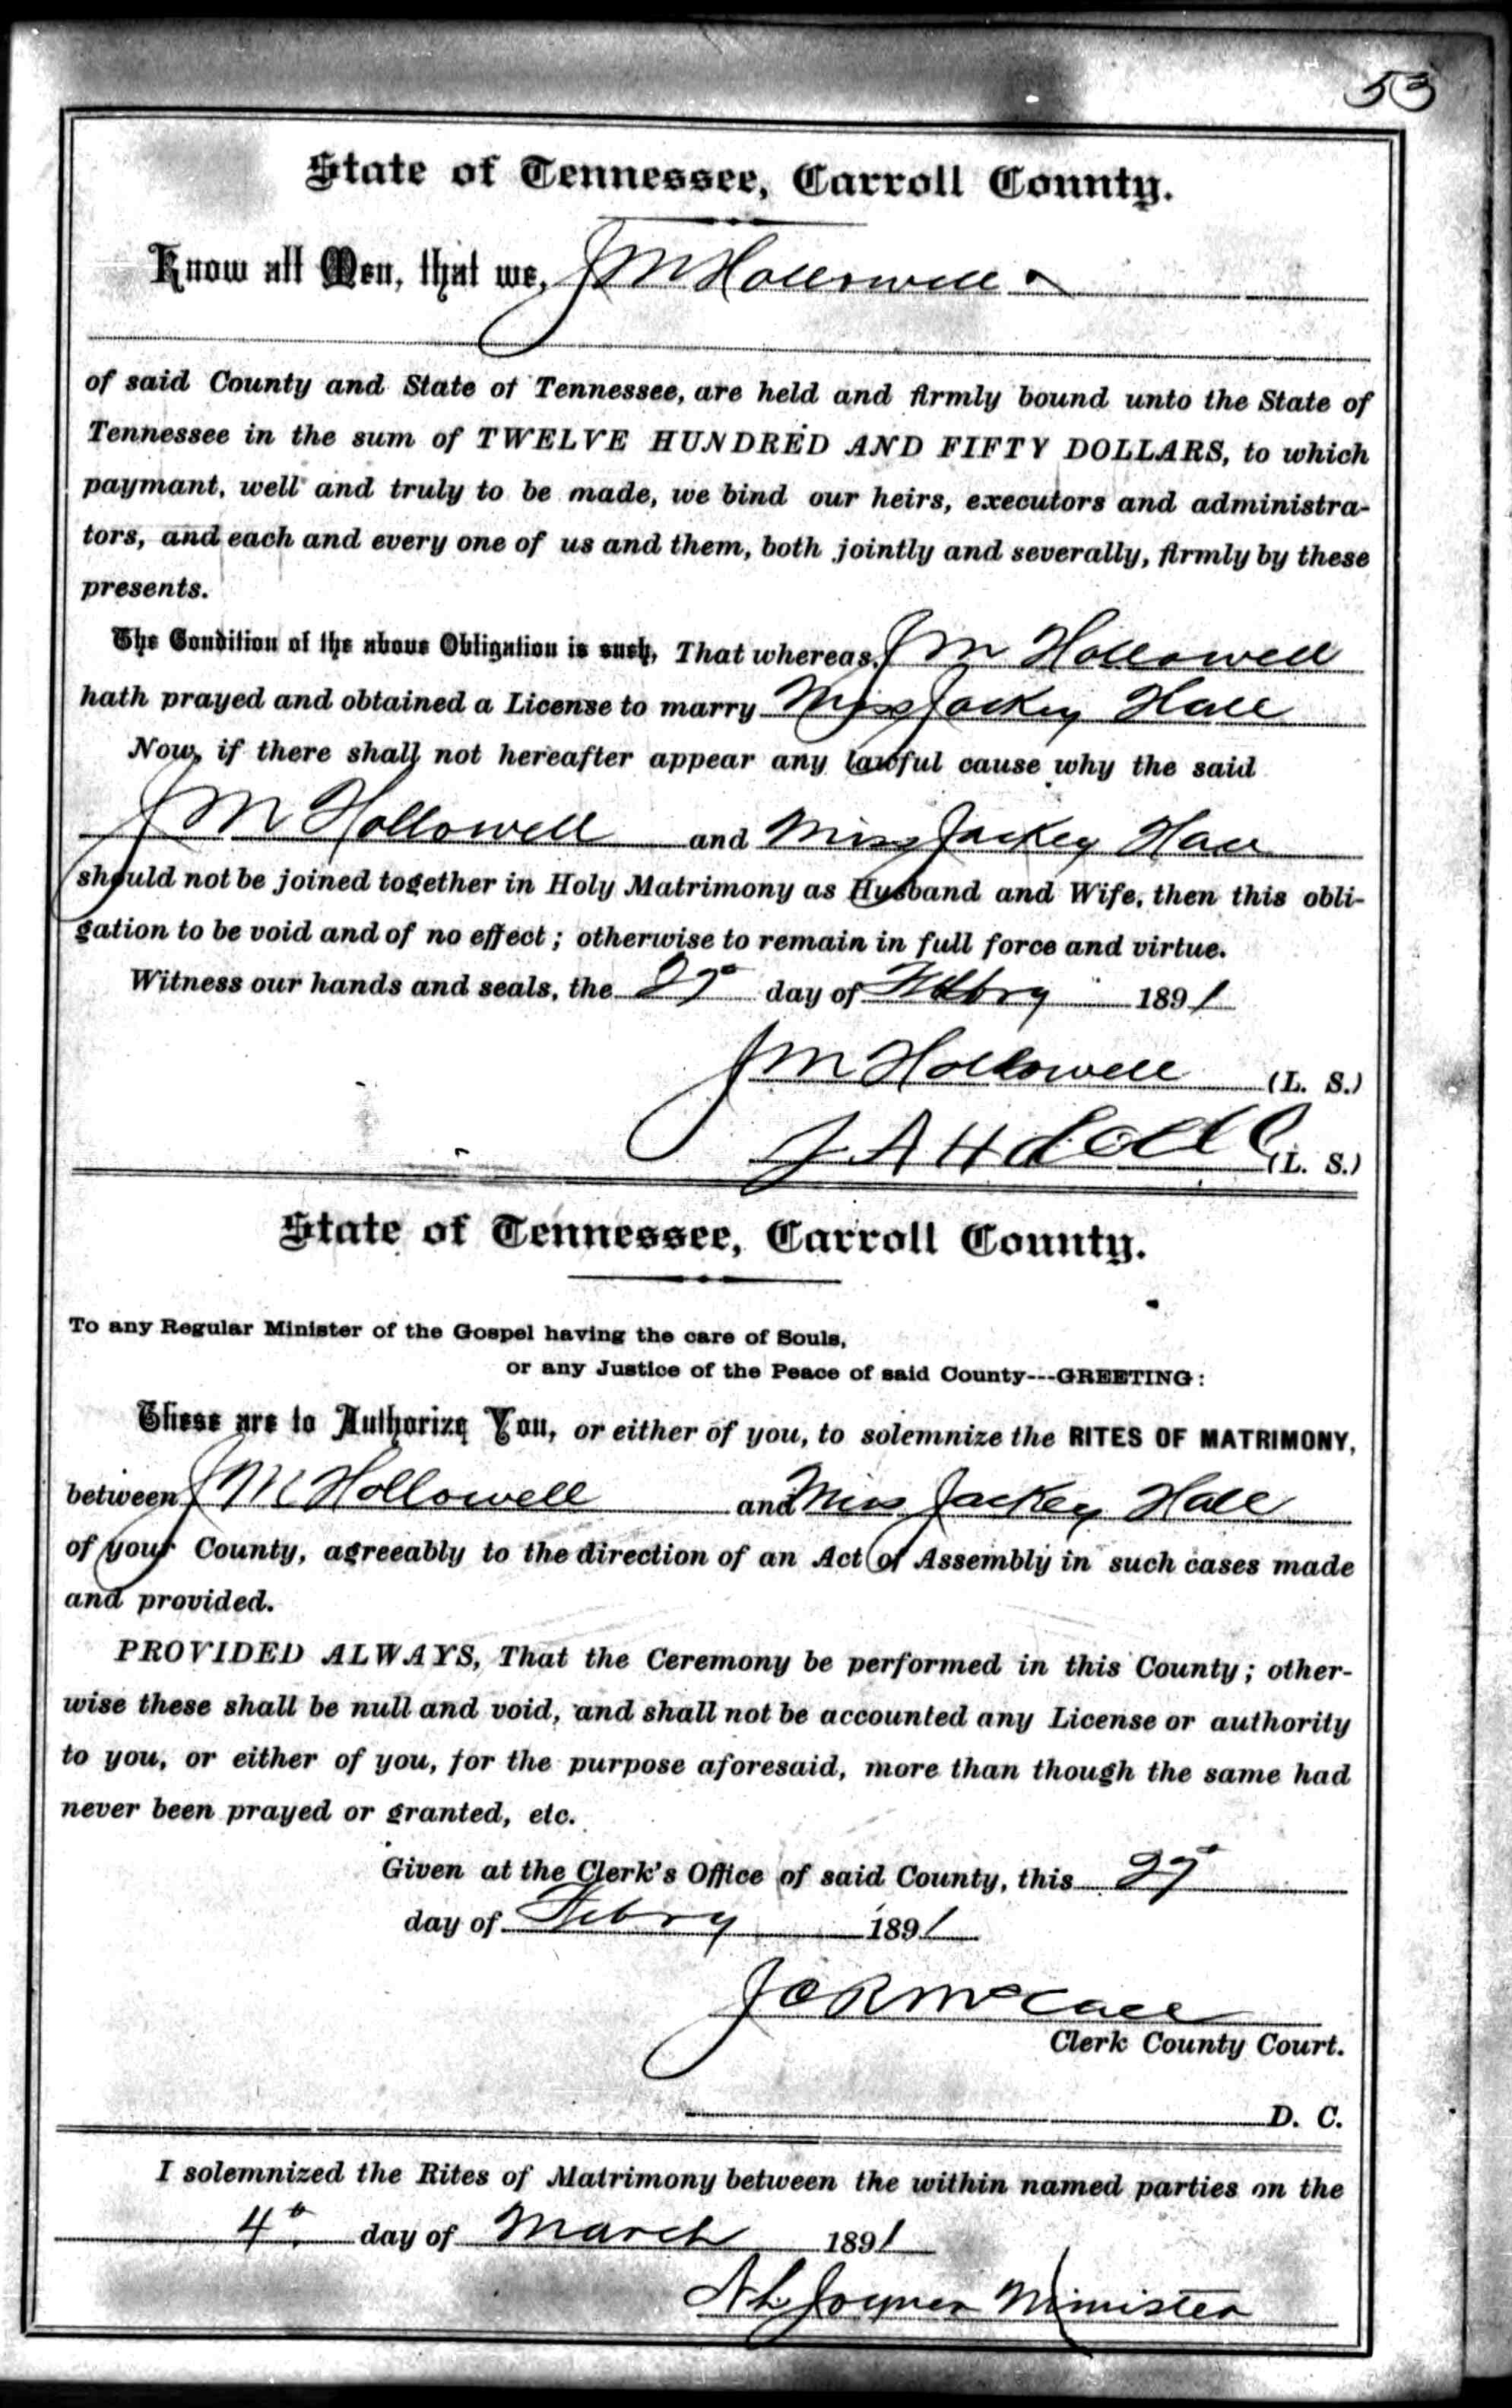 53
State of Tennessee, Carroll County.
Know all Men, that we, J M Hollowell
of said County and State of Tennessee, are held and firmly bound unto the State of
Tennessee in the sum of TWELVE HUNDRED AND FIFTY DOLLARS, to which
paymant, well and truly to be made, we bind our heirs, executors and administra-
tors, and each and every one of us and them, both jointly and severally, firmly by these
presents.
The Condition of the above Obligation is such, That whereas, J M Hollowell
hath prayed and obtained a License to marry Miss Jackey Hall
Now, if there shall not hereafter appear any lawful cause why the said
J M Hollowell and Miss Jackey Hall
should not be joined together in Holy Matrimony as Husband and Wife, then this obli-
gation to be void and of no effect; otherwise to remain in full force and virtue.
Witness our hands and seals, the 27 day of Febry 1891
J M Hollowell (L. S.)
J. A H (L. S.)
State of Tennessee, Carroll County.
To any Regular Minister of the Gospel having the care of Souls,
or any Justice of the Peace of said County---GREETING:
These are to Authorize You, or either of you, to solemnize the RITES OF MATRIMONY,
between J M Hollowell and Miss Jackey Hall
of your County, agreeably to the direction of an Act of Assembly in such cases made
and provided.
PROVIDED ALWAYS, That the Ceremony be performed in this County; other-
wise these shall be null and void, and shall not be accounted any License or authority
to you, or either of you, for the purpose aforesaid, more than though the same had
never been prayed or granted, etc.
Given at the Clerk's Office of said County, this 27
day of Febry 1891
Jo R McCall
Clerk County Court.
D. C.
I solemnized the Rites of Matrimony between the within named parties on the
4th day of March 1891
N L Joyner Minister